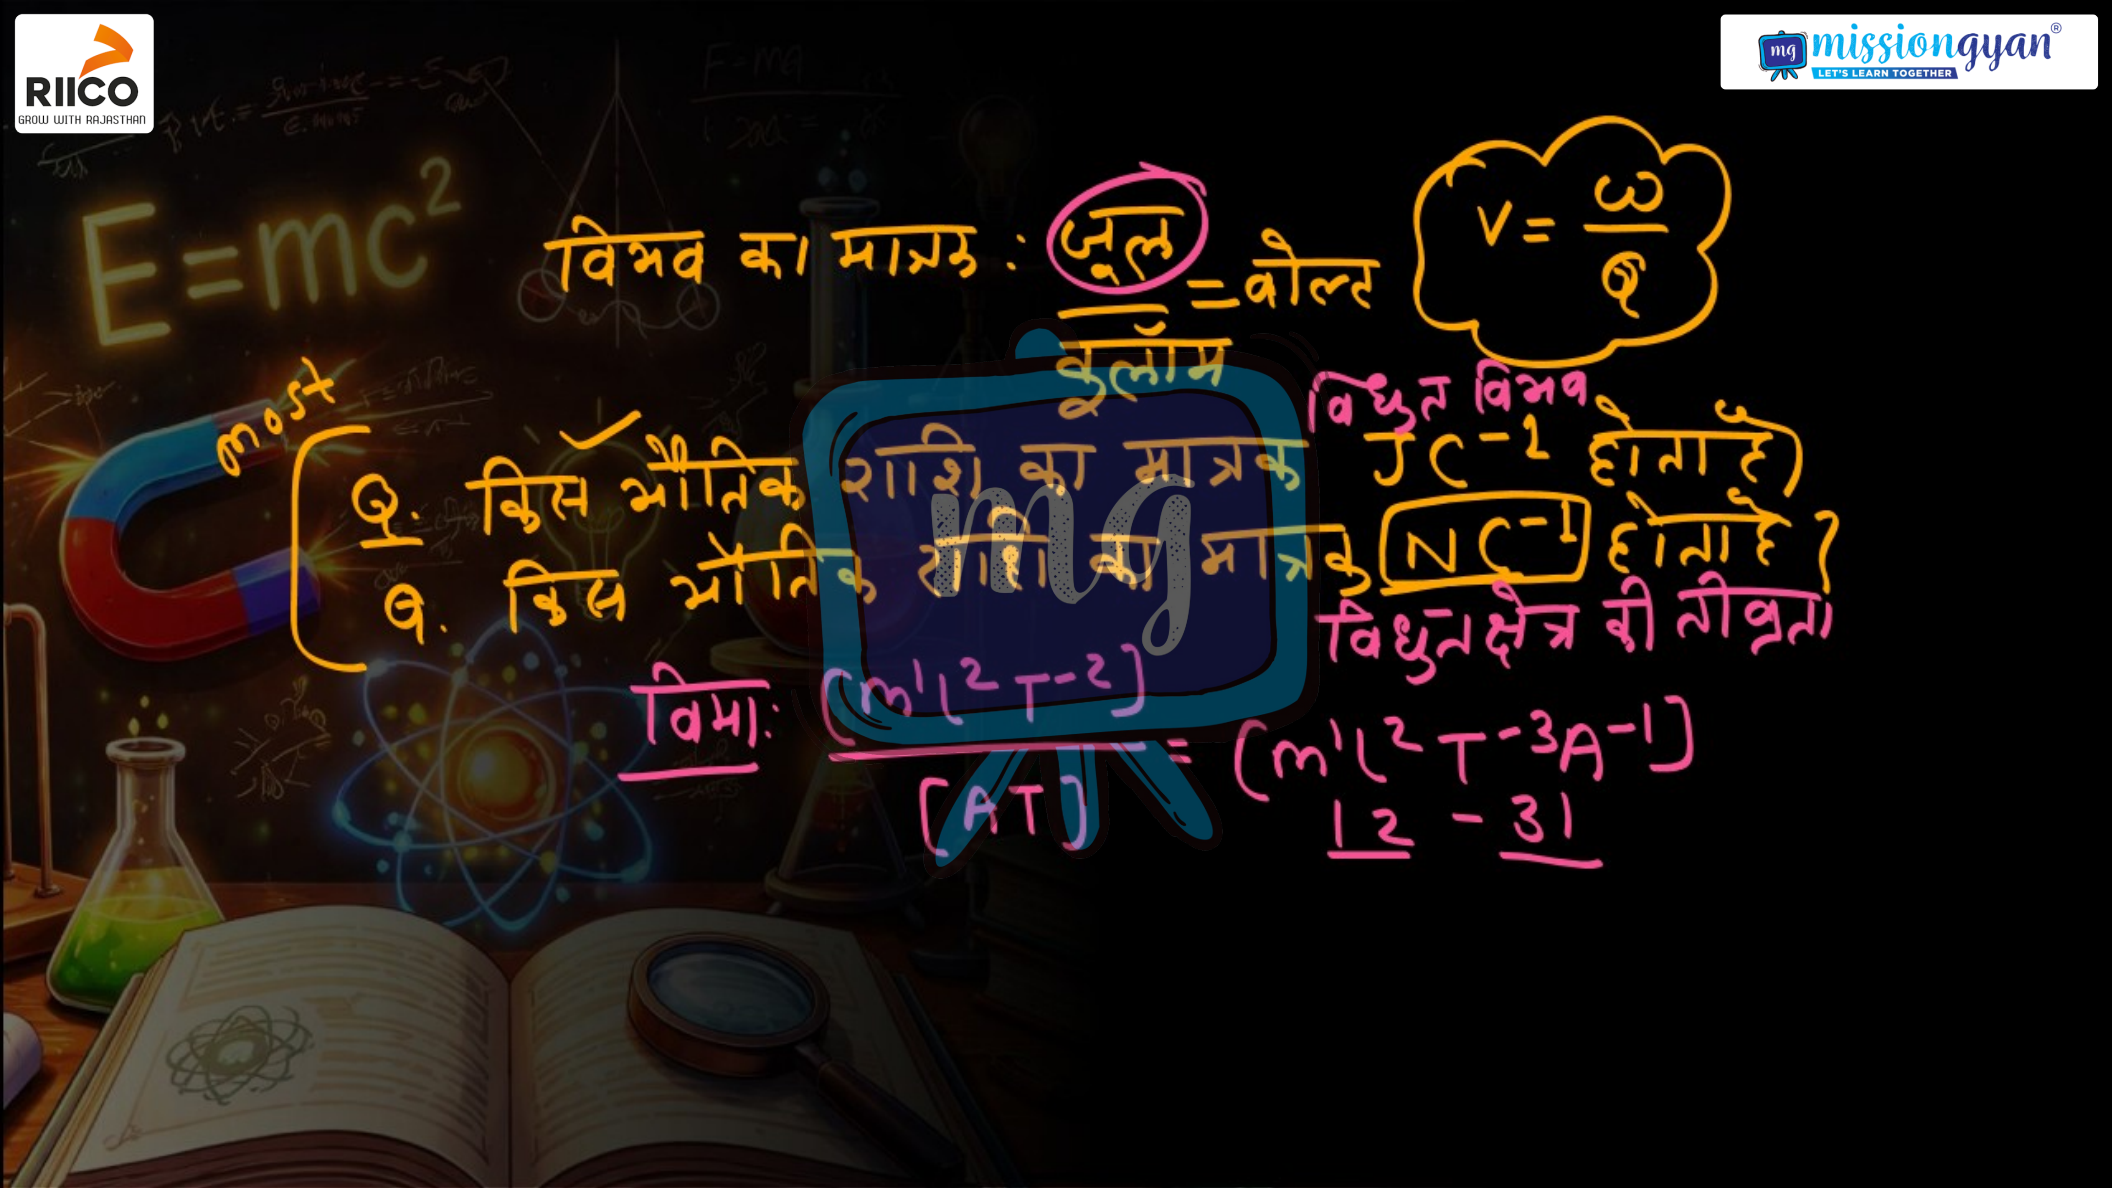 RIICO
GROW WITH RAJASTHAN
mg missiongyan®
LET'S LEARN TOGETHER
E=mc²
विभव का मात्रक : जूल / कुलॉम = वोल्ट
V = ω / Q
most
विधुत विभव
Q. किस भौतिक राशि का मात्रक JC⁻¹ होता है)
Q. किस भौतिक राशि का मात्रक NC⁻¹ होता है ?
विधुत क्षेत्र की तीव्रता
विमा: [M¹L²T⁻²] / [AT] = [M¹L²T⁻³A⁻¹]
12 - 31
mg